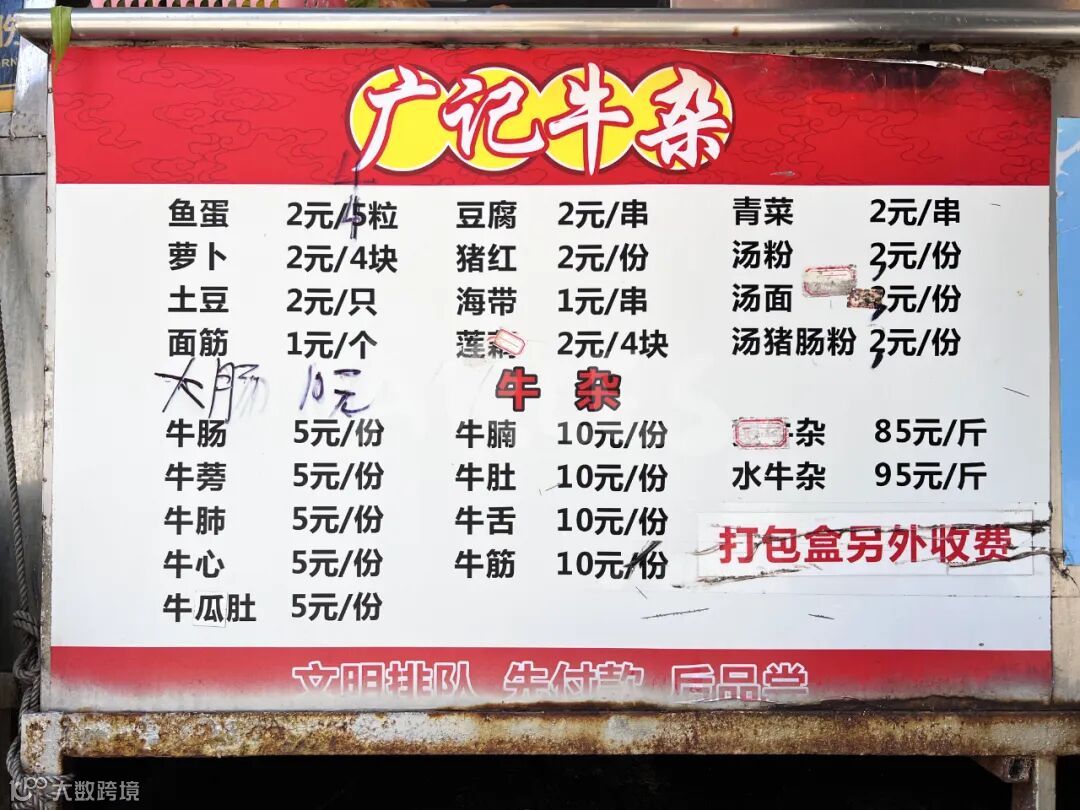 广记牛杂
鱼蛋 2元/4粒 豆腐 2元/串 青菜 2元/串
萝卜 2元/4块 猪红 2元/份 汤粉 2元/份
土豆 2元/只 海带 1元/串 汤面 元/份
面筋 1元/个 莲藕 2元/4块 汤猪肠粉 元/份
大肠 10元
牛杂
牛肠 5元/份 牛腩 10元/份 杂 85元/斤
牛蒡 5元/份 牛肚 10元/份 水牛杂 95元/斤
牛肺 5元/份 牛舌 10元/份
打包盒另外收费
牛心 5元/份 牛筋 10元/份
牛瓜肚 5元/份
文明排队 先付款 后品尝
大数跨境